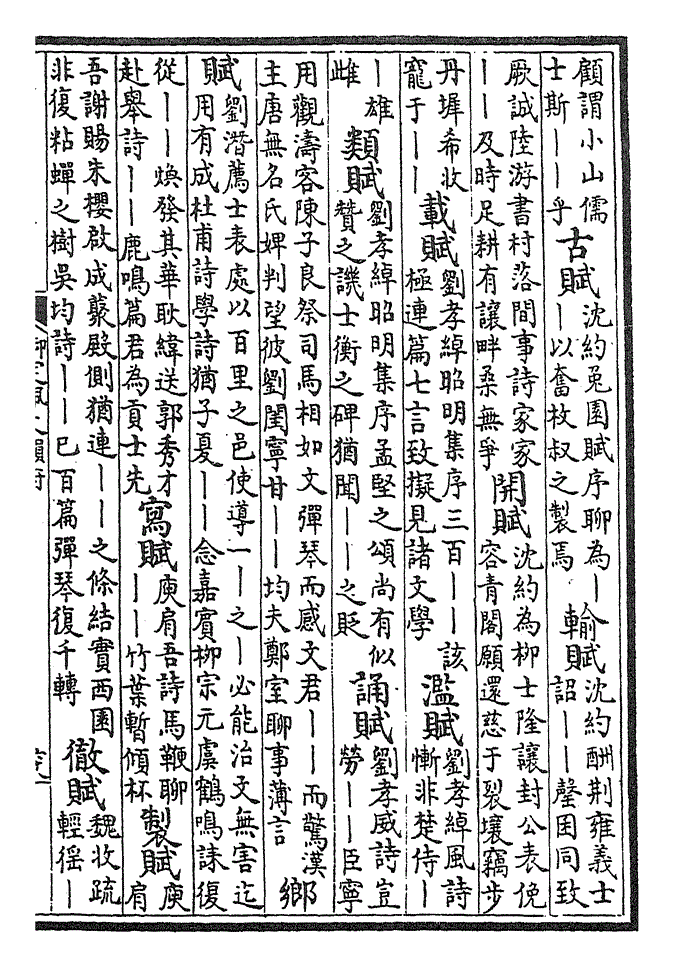 顧謂小山儒士斯——乎 古賦 沈約兎園賦序聊為—以奮枚叔之製焉 輸賦 沈約酬荆雍義士詔——罄囷同致
厥誠陸游書村落間事詩家家——及時足耕有讓畔桑無爭 開賦 沈約為柳士隆讓封公表俛容青閣願還慈于裂壤竊步
丹墀希收寵于—— 載賦 劉孝綽昭明集序三百——該極連篇七言致擬見諸文學 濫賦 劉孝綽風詩慚非楚侍—
—雄雌 類賦 劉孝綽昭明集序孟堅之頌尚有似贊之譏士衡之碑猶聞——之貶 誦賦 劉孝威詩豈勞——臣寧
用觀濤客陳子良祭司馬相如文彈琴而感文君——而驚漢主唐無名氏婢判望彼劉閨寧甘——均夫鄭室聊事薄言 鄉
賦 劉潛薦士表處以百里之邑使導一——之—必能治文無害迄用有成杜甫詩學詩猶子夏——念嘉賓柳宗元虞鶴鳴誄復
從——煥發其華耿緯送郭秀才赴舉詩——鹿鳴篇君為貢士先 寫賦 庾肩吾詩馬鞭聊——竹葉暫傾杯 製賦 庾肩
吾謝賜朱櫻啟成藂殿側猶連——之條結實西園非復粘蟬之樹吳均詩——已百篇彈琴復千轉 徹賦 魏收疏輕徭—